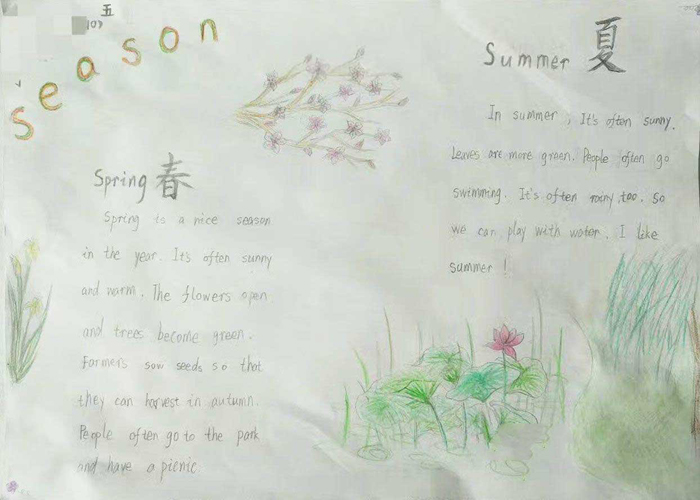 五
season
Spring 春
Spring is a nice season
in the year. It's often sunny
and warm. The flowers open
and trees become green.
Farmers sow seeds so that
they can harvest in autumn.
People often go to the park
and have a picnic.
Summer 夏
In summer, It's often sunny.
Leaves are more green. People often go
swimming. It's often rainy, too. So
we can play with water. I like
summer!